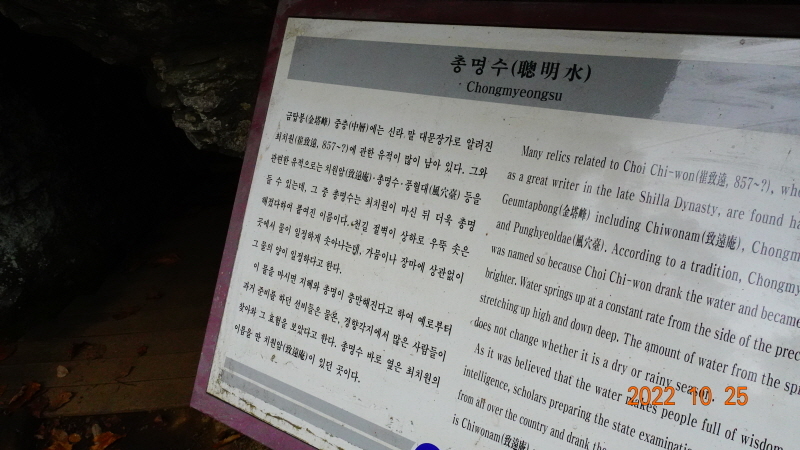 총명수(聰明水)
Chongmyeongsu
금탑봉(金塔峰) 중층(中層)에는 신라 말 대문장가로 알려진
최치원(崔致遠, 857~?)에 관한 유적이 많이 남아 있다. 그와
관련한 유적으로는 치원암(致遠庵)·총명수·풍혈대(風穴臺) 등을
들 수 있는데, 그 중 총명수는 최치원이 마신 뒤 더욱 총명
해졌다하여 붙여진 이름이다. 천길 절벽이 상하로 우뚝 솟은
곳에서 물이 일정하게 솟아나는데, 가뭄이나 장마에 상관없이
그 물의 양이 일정하다고 한다.
이 물을 마시면 지혜와 총명이 충만해진다고 하여 예로부터
과거 준비를 하던 선비들은 물론, 경향각지에서 많은 사람들이
찾아와 그 효험을 보았다고 한다. 총명수 바로 옆은 최치원의
이름을 딴 치원암(致遠庵)이 있던 곳이다.
Many relics related to Choi Chi-won(崔致遠, 857~?), who
as a great writer in the late Shilla Dynasty, are found
Geumtapbong(金塔峰) including Chiwonam(致遠庵),
and Punghyeoldae(風穴臺). According to a tradition,
was named so because Choi Chi-won drank the water and became
brighter. Water springs up at a constant rate from the side of the
stretching up high and down deep. The amount of water from the
does not change whether it is a dry or rainy season.
As it was believed that the water makes people full of wisdom
intelligence, scholars preparing the state
from all over the country and drank
is Chiwonam(致遠庵)
2022 10 25